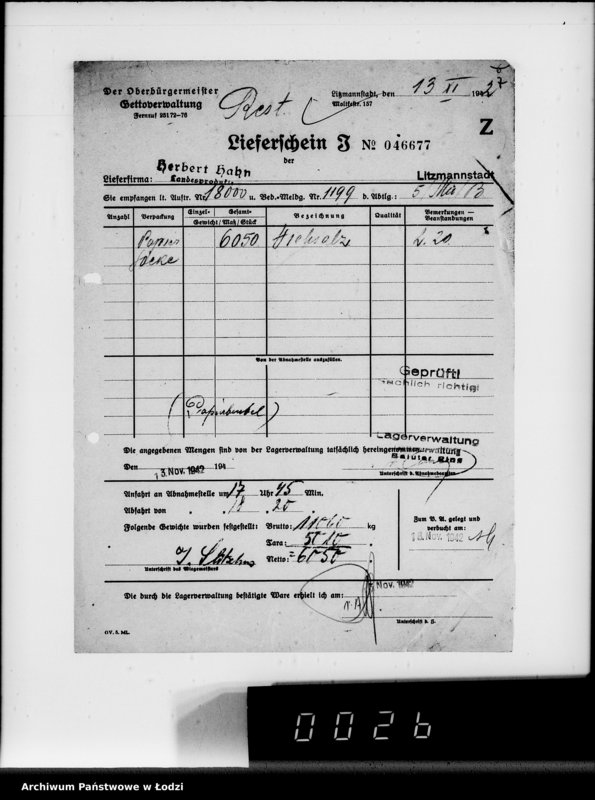 Der Oberbürgermeister
Gettoverwaltung
Fernruf 25172–76
Rest.
Litzmannstadt, den 13 XI 1942
Moltkestr. 157
Z
Lieferschein J № 046677
der
Lieferfirma: Herbert Hahn
Landesprodukte
Litzmannstadt
Sie empfangen lt. Auftr. Nr. 18000 u. Bed.-Meldg. Nr. 1199 d. Abtlg.:
Anzahl Verpackung Einzel- Gesamt- Bezeichnung Qualität Bemerkungen — Beanstandungen
Gewicht/Maß/Stück
Papier 6050 L. 20
säcke
Von der Abnahmestelle auszufüllen.
Geprüft!
sachlich richtig!
(Papierbeutel)
Lagerverwaltung
Die angegebenen Mengen sind von der Lagerverwaltung tatsächlich hereingenommen
Baluter Ring
Den 13. Nov. 1942 194
Unterschrift d. Abnahmestelle
Anfahrt an Abnahmestelle um 17 Uhr 45 Min.
Abfahrt von " 18 " 20 "
Folgende Gewichte wurden festgestellt: Brutto: 11060 kg
Tara: 5010 "
Netto: = 6050 "
Unterschrift des Wiegemeisters
Zum B. A. gelegt und
verbucht am:
18. Nov. 1942
Die durch die Lagerverwaltung bestätigte Ware erhielt ich am: Nov. 1942
Unterschrift d. F.
GV. 5. ML.
0026
Archiwum Państwowe w Łodzi